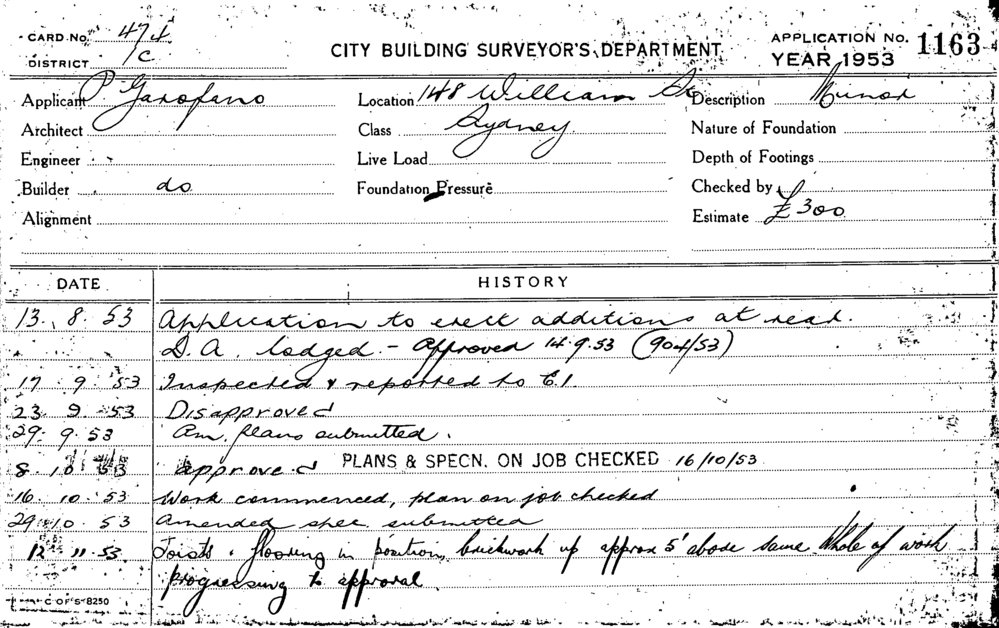 CARD No. 474
DISTRICT /C
CITY BUILDING SURVEYOR'S DEPARTMENT
APPLICATION No. 1163
YEAR 1953
Applicant P Garofano
Location 148 William St
Description Minor
Architect
Class Sydney
Nature of Foundation
Engineer
Live Load
Depth of Footings
Builder do
Foundation Pressure
Checked by
Alignment
Estimate £300
DATE HISTORY
13. 8. 53 Application to erect additions at rear.
D.A. lodged. - Approved 14.9.53 (904/53)
17. 9. 53 Inspected & reported to C.I.
23. 9. 53 Disapproved
29. 9. 53 Am. plans submitted.
8. 10. 53 approved PLANS & SPECN. ON JOB CHECKED 16/10/53
16. 10. 53 Work commenced, plan on job checked
29. 10. 53 Amended spec. submitted
12. 11. 53 Joists & flooring in position, brickwork up approx 5' above same Whole of work
progressing to approval
C OF S 8250